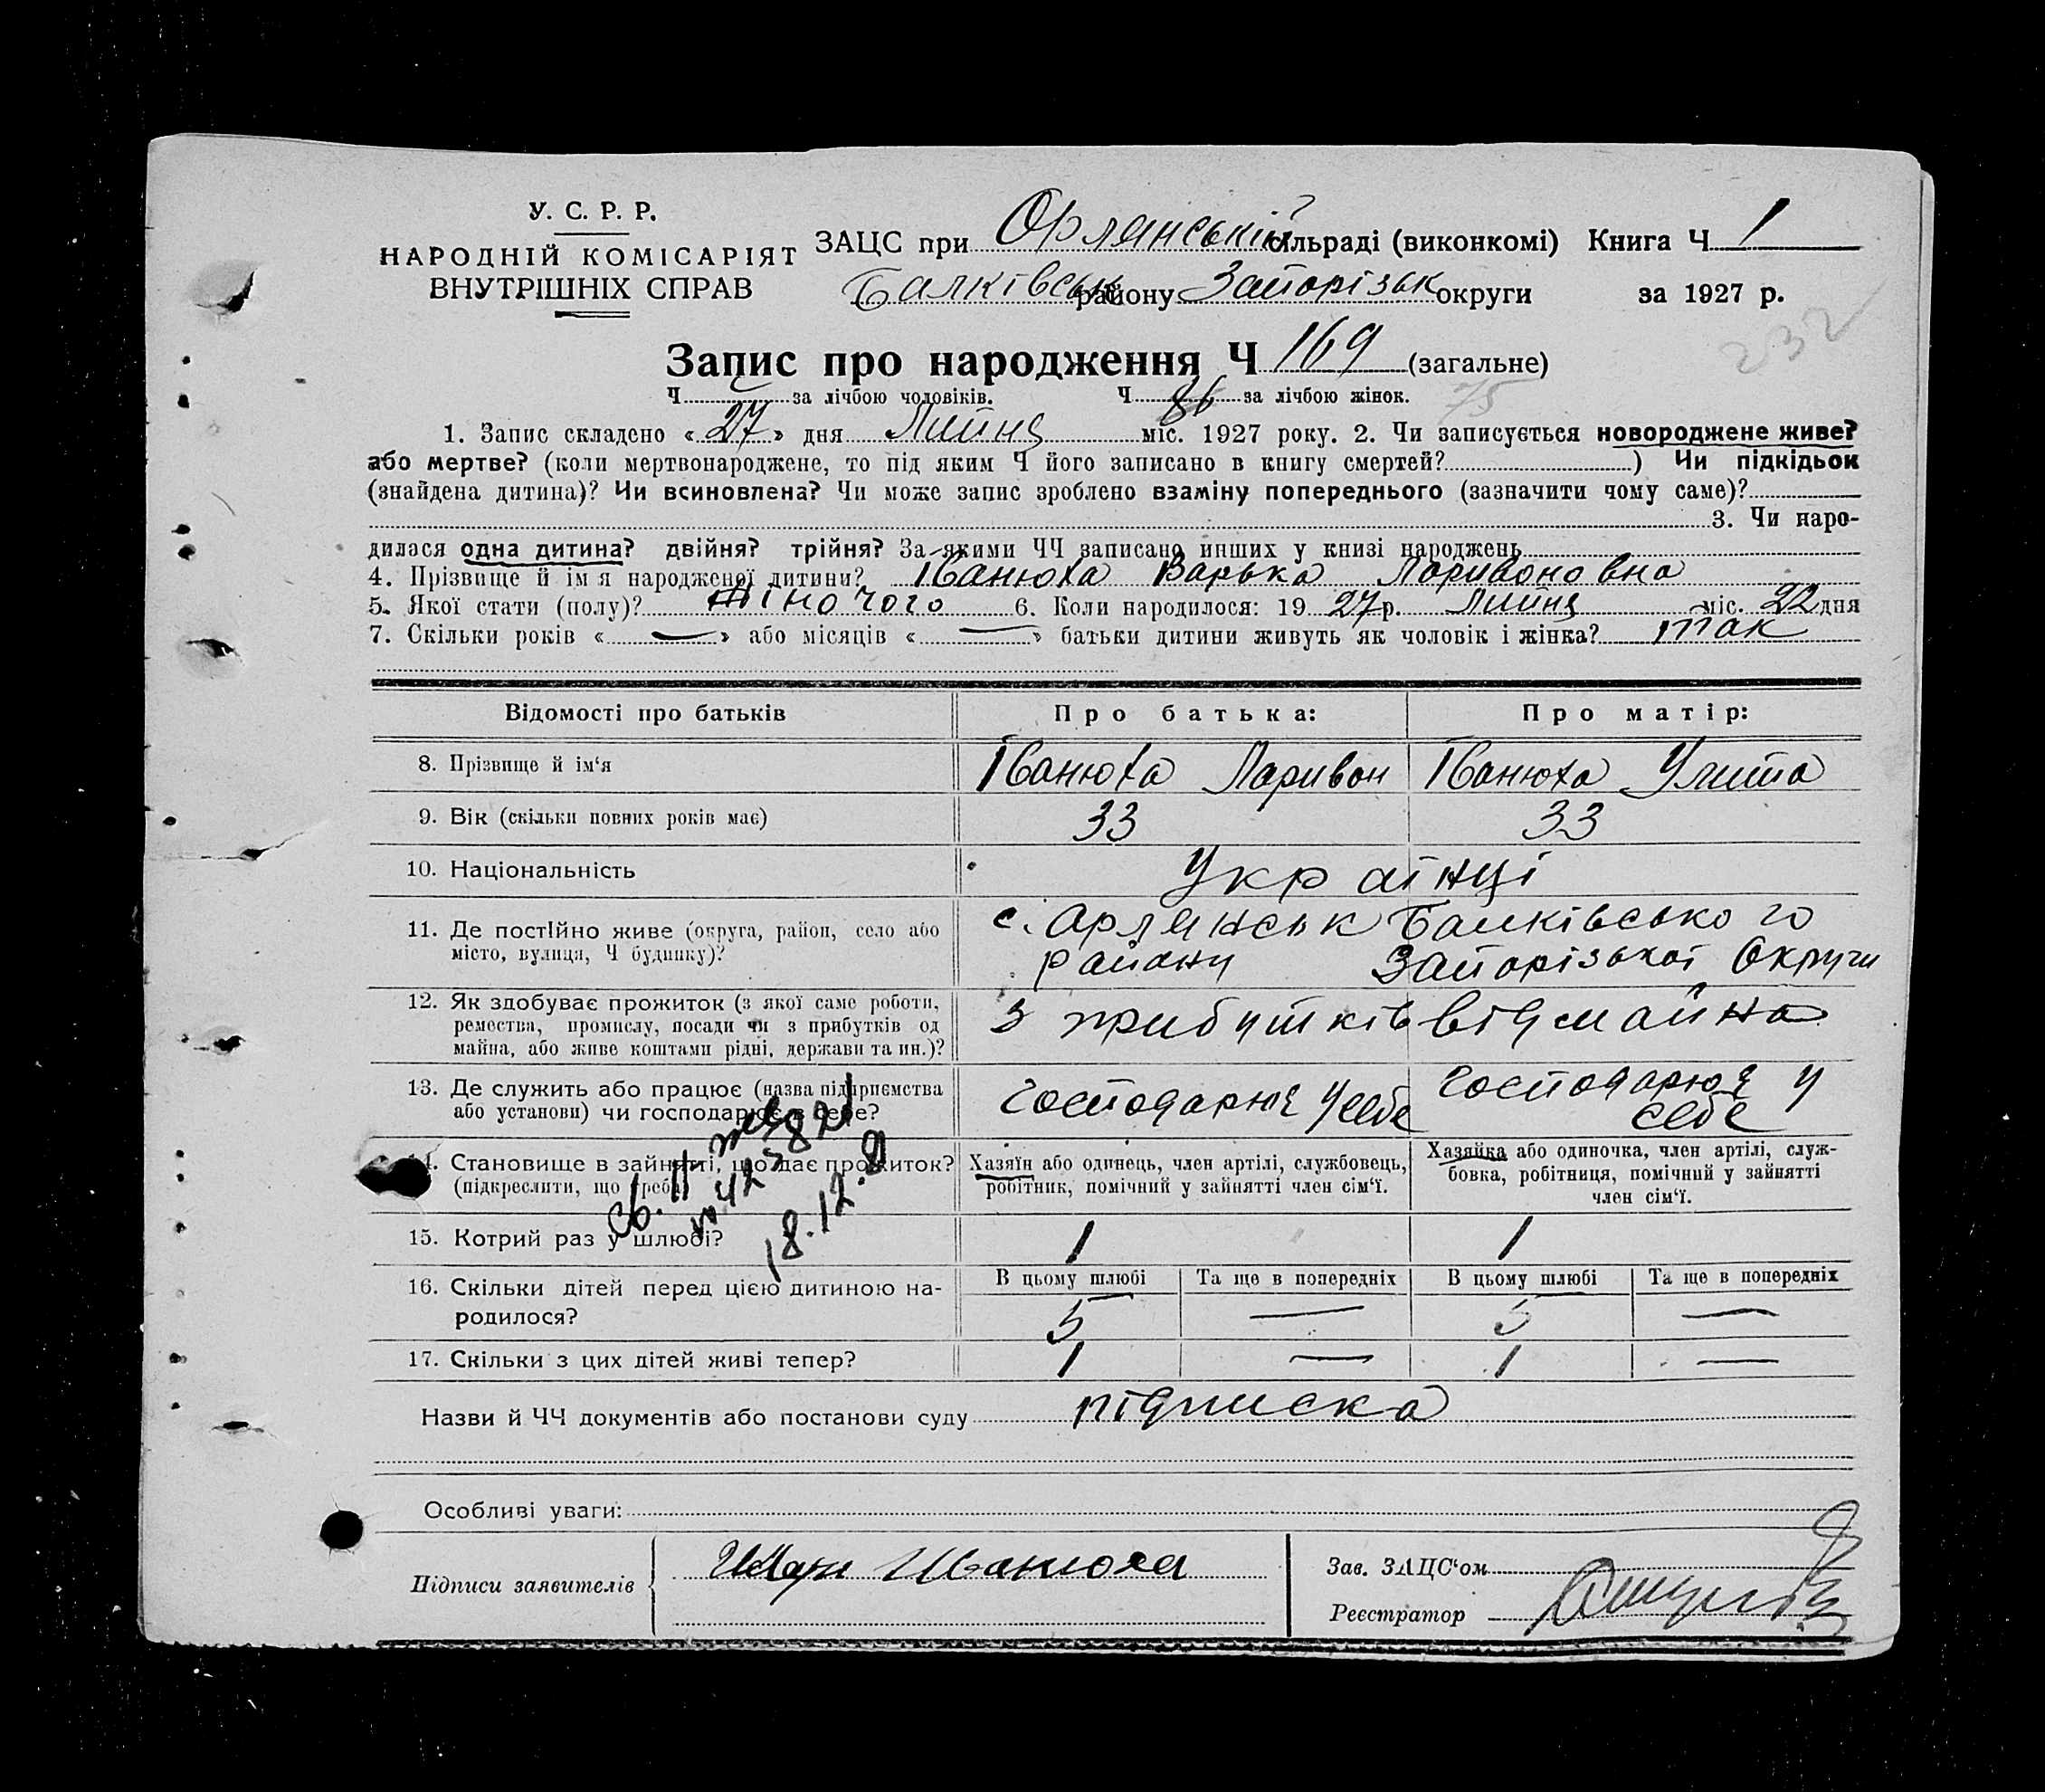 У. С. Р. Р.
НАРОДНІЙ КОМІСАРІЯТ
ВНУТРІШНІХ СПРАВ
ЗАЦС при Орлянській сільраді (виконкомі) Книга Ч 1
Балківськ району Запорізьк округи за 1927 р.
232
Запис про народження Ч 169 (загальне)
Ч за лічбою чоловіків. Ч 86 за лічбою жінок. 75
1. Запис складено «27» дня Липня міс. 1927 року. 2. Чи записується новороджене живе?
або мертве? (коли мертвонароджене, то під яким Ч його записано в книгу смертей? ) Чи підкідьок
(знайдена дитина)? Чи всиновлена? Чи може запис зроблено взаміну попереднього (зазначити чому саме)?
3. Чи наро-
дилася одна дитина? двійня? трійня? За якими ЧЧ записано инших у книзі народжень
4. Прізвище й ім'я народженої дитини? Іванюха Варька Ларивоновна
5. Якої стати (полу)? Жіночого 6. Коли народилося: 1927 р. Липня міс. 22 дня
7. Скільки років « — » або місяців « — » батьки дитини живуть як чоловік і жінка? так
Відомості про батьків Про батька: Про матір:
8. Прізвище й ім'я Іванюха Ларивон Іванюха Улита
9. Вік (скільки повних років має) 33 33
10. Національність Українці
11. Де постІйно живе (округа, район, село або
місто, вулиця, Ч будинку)?
с. Орлянськ Балківського
району Запорізької Округи
12. Як здобуває прожиток (з якої саме роботи,
ремества, промислу, посади чи з прибутків од
майна, або живе коштами рідні, держави та ин.)?
з прибутків від майна
13. Де служить або працює (назва підприємства
або установи) чи господарює в себе?
господарює у себе
господарює у
себе
14. Становище в зайнятті, що дає прожиток?
(підкреслити, що треба)
Хазяїн або одинець, член артілі, службовець,
робітник, помічний у зайнятті член сім'ї.
Хазяйка або одиночка, член артілі, служ-
бовка, робітниця, помічний у зайнятті
член сім'ї.
св. II
18.12.
15. Котрий раз у шлюбі? 1 1
16. Скільки дітей перед цією дитиною на-
родилося?
В цьому шлюбі Та ще в попередніх В цьому шлюбі Та ще в попередніх
5 — 5 —
17. Скільки з цих дітей живі тепер? 1 — 1 —
Назви й ЧЧ документів або постанови суду підписка
Особливі уваги:
Підписи заявителів Иванюха
Зав. ЗАЦС'ом
Реєстратор